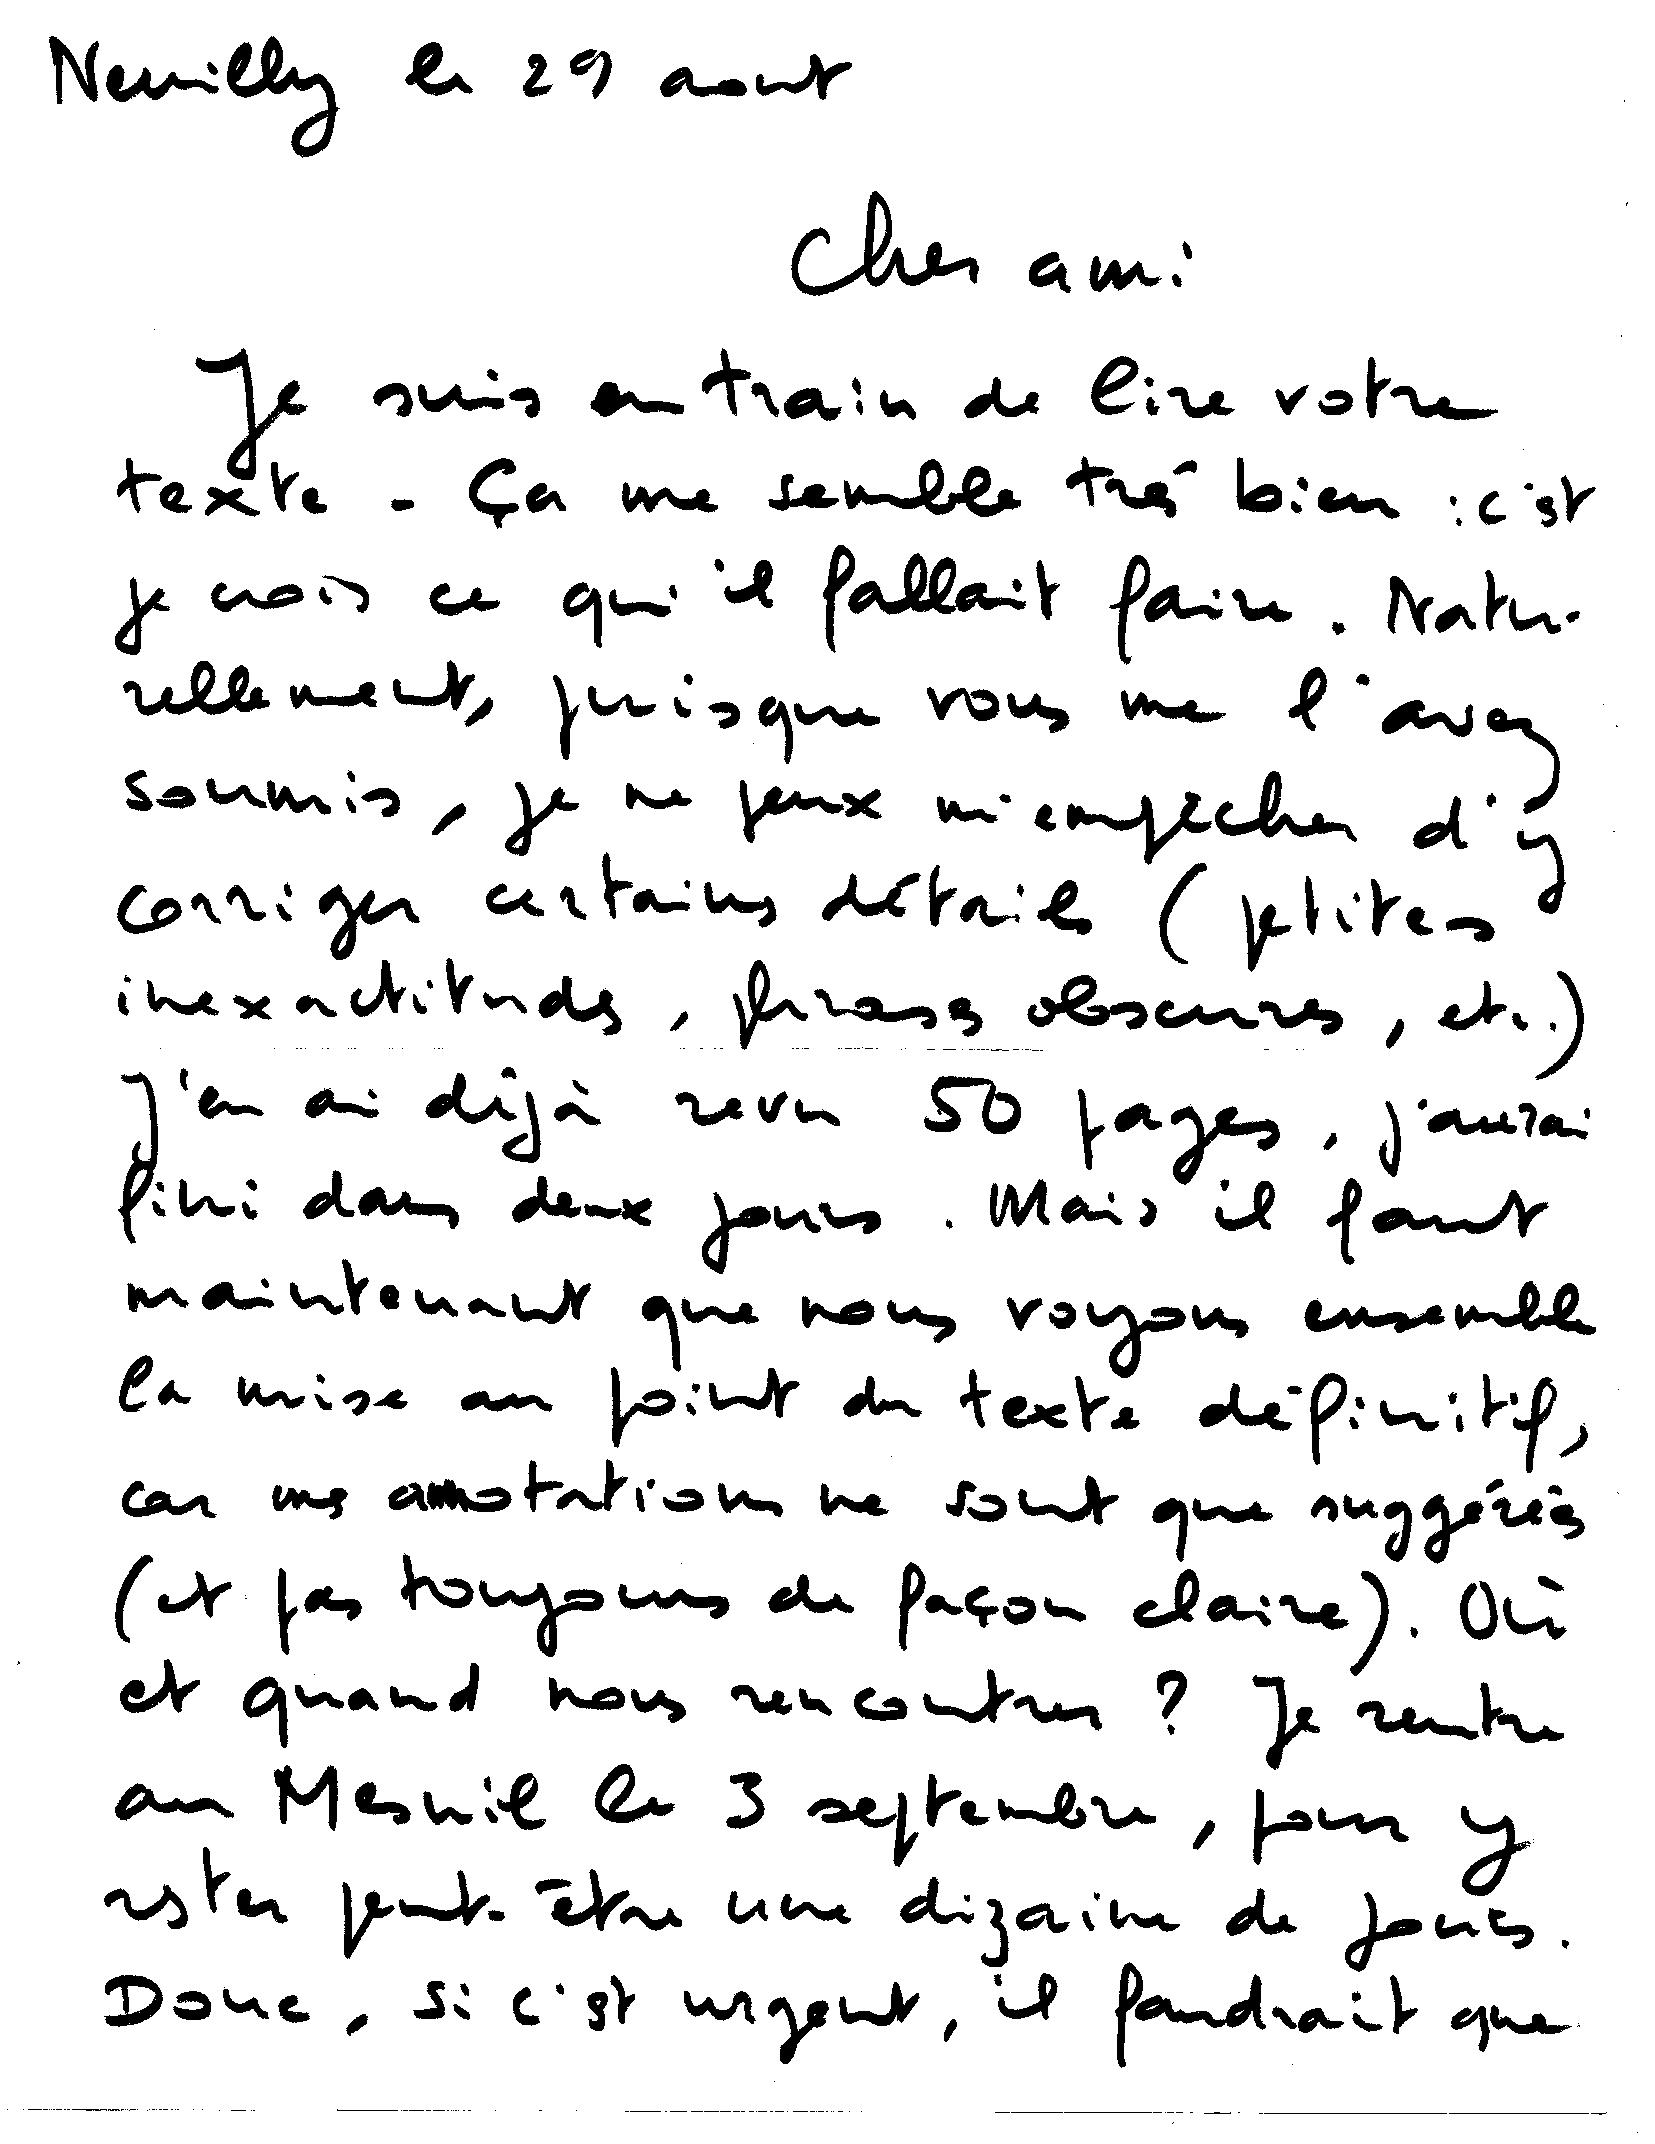 Neuilly le 29 aout
Cher ami
Je suis en train de lire votre
texte - Ça me semble très bien : c'est
je crois ce qu'il fallait faire. Natu-
rellement, puisque vous me l'avez
soumis, je ne peux m'empêcher d'y
corriger certains détails (petites
inexactitudes, phrases obscures, etc..)
J'en ai déjà revu 50 pages, j'aurai
fini dans deux jours. Mais il faut
maintenant que nous voyons ensemble
la mise au point du texte définitif,
car mes annotations ne sont que suggérées
(et pas toujours de façon claire). Où
et quand nous rencontrer ? Je rentre
au Mesnil le 3 septembre, pour y
rester peut-être une dizaine de jours.
Donc, si c'est urgent, il faudrait que